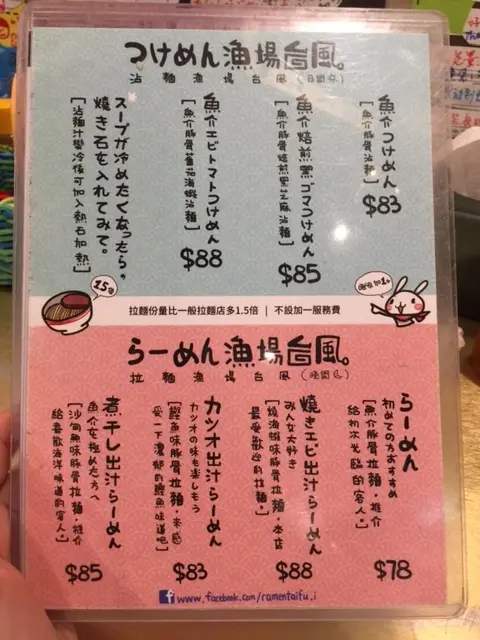 つけめん漁場台風。
沾麵漁場台風(日間店)
魚介つけめん
[魚介豚骨沾麵]
$83
魚介焙煎黒ゴマつけめん
[魚介豚骨焙煎黑芝麻沾麵]
$85
魚介エビトマトつけめん
[魚介豚骨蕃茄海蝦沾麵]
$88
スープが冷めたくなったら,
焼き石を入れてみて。
[沾麵汁變冷後可加入熱石加熱]
1.5倍
拉麵份量比一般拉麵店多1.5倍 | 不設加一服務費
らーめん漁場台風。
拉麵漁場台風(晚間店)
らーめん
初めての方おすすめ
[魚介豚骨拉麵,推介
給初次光臨的客人。]
$78
焼きエビ出汁らーめん
みんな大好き
[燒海蝦味豚骨拉麵,本店
最受歡迎的拉麵。]
$88
カツオ出汁らーめん
カツオの味も楽しもう
[鰹魚味豚骨拉麵,來感
受一下濃郁的鰹魚味道吧]
$83
煮干し出汁らーめん
魚介を極めた方へ
[沙甸魚味豚骨拉麵,推介
給喜歡海洋味道的客人。]
$85
www.facebook.com/ramentaifu.i